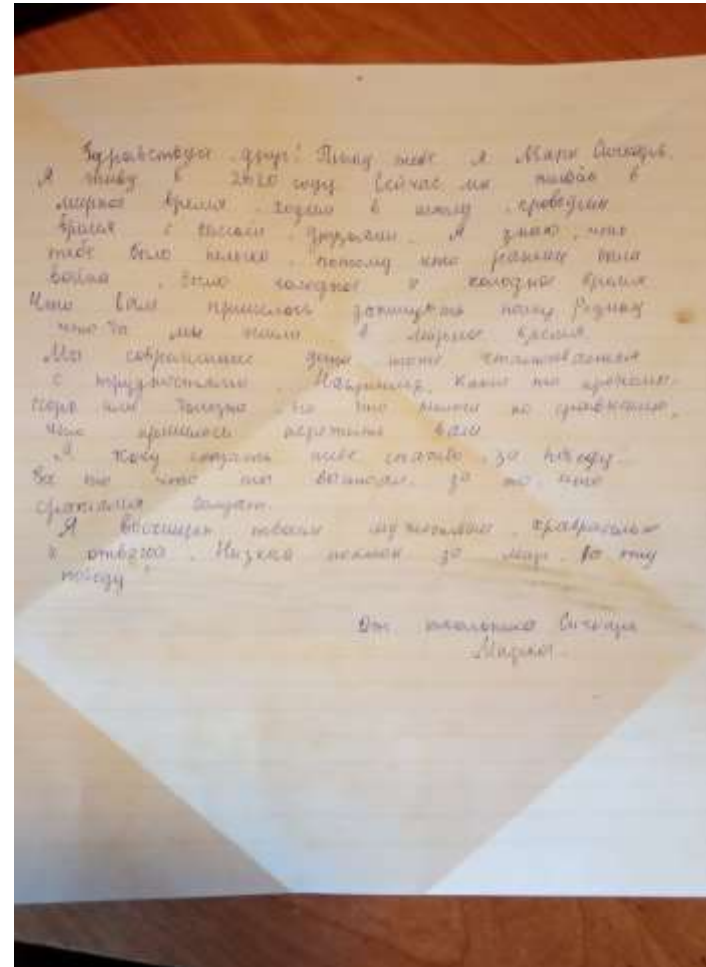 Здравствуй друг! Пишу тебе я Марк
Я живу в 2020 году. Сейчас мы живём в
мирное время. Ходим в школу, проводим
время с друзьями. Я знаю, что
тебе было нелегко, потому что раньше была
война, было голодное и холодное время
Что вам пришлось защищать нашу Родину
что бы мы жили в мирное время.
Мы современные дети тоже сталкиваемся
с трудностями. Например, какие то
горе или болезнь, но это по сравнению,
что пришлось пережить вам
Я хочу сказать тебе спасибо за победу.
За то что ты воевал, за то, что
сражался солдат.
Я восхищён твоим мужеством, храбростью
и отвагой. Низкий поклон за мир, за эту
победу!
От школьника
Марка.